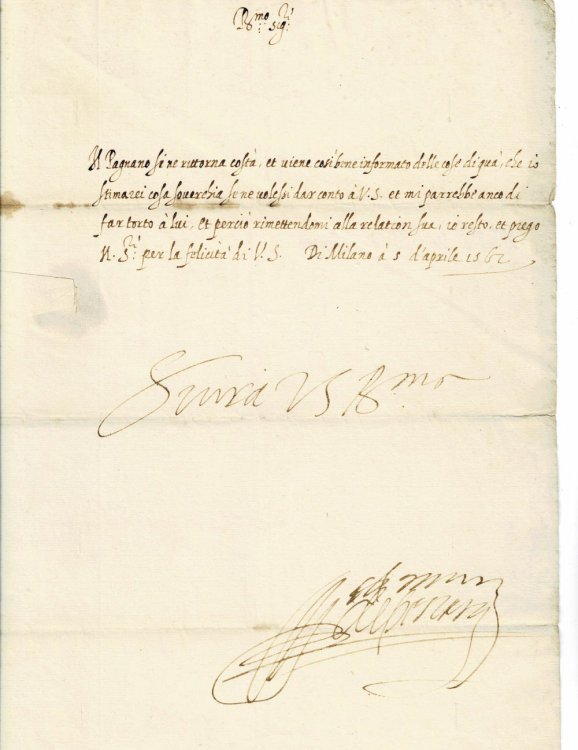 R.mo sig.r
Il Pagnano si ne ritorna costà, et viene cosi bene informato delle cose di quà, che io
stimarei cosa soverchia se ne volessi dar conto à V.S. et mi parrebbe anco di
far torto à lui, Et perciò rimettendomi alla relation sua, io resto, et prego
N. S.r per la felicità di V. S. Di Milano à 5 d'aprile 1562
VS R.mo